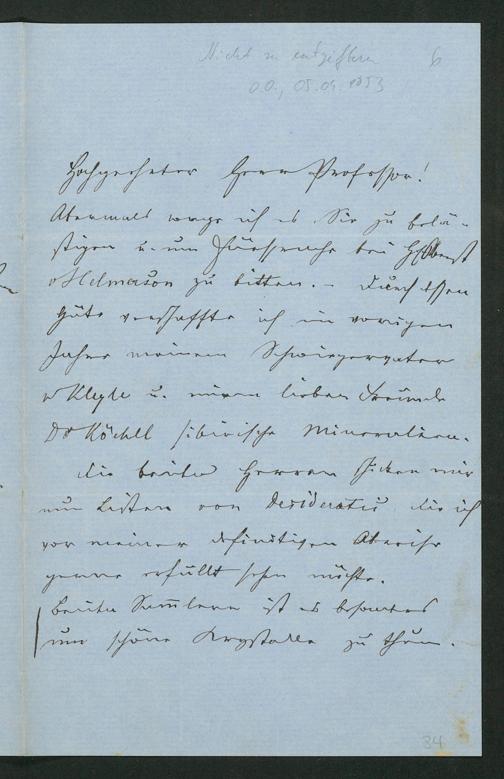 Nicht zu entziffern 6
o.O., 05.01.1853
Hochgeehrter Herr Professor!
Abermals wage ich es Sie zu belä-
stigen u. um Fürsprache bei H. Oberst
v Helmerson zu bitten. – Durch dessen
Güte verschaffte ich im vorigen
Jahre meinem Schwiegervater
v Kleyle u. meinem lieben Freunde
Dr Köchel sibirische Mineralien.
Die beiden Herren schicken mir
nun Listen von Desideratis die ich
vor meiner definitiven Abreise
gerne erfüllt sehen möchte.
Beiden Sammlern ist es besonders
um schöne Krystalle zu thun.
34